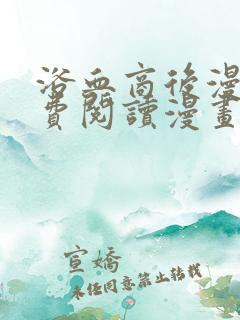 浴血商後漫
費閱讀漫畫
宣嬌
未经同意禁止转载